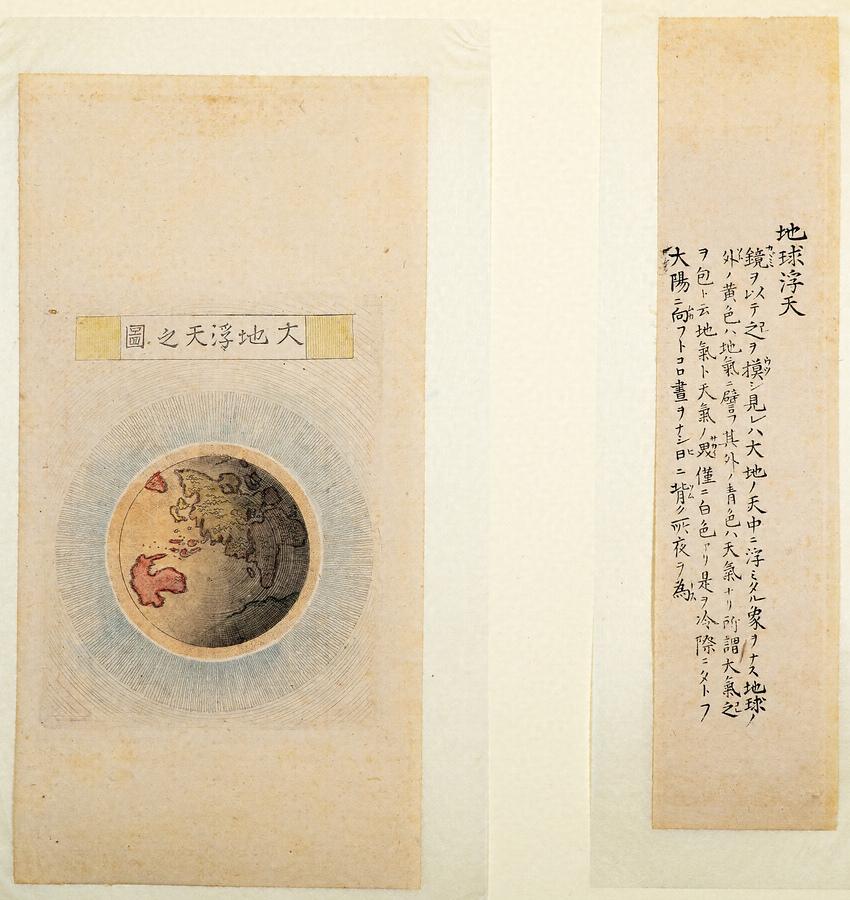 地球浮天
鏡ヲ以テ之ヲ摸シ見レハ大地ノ天中ニ浮ミタル象ヲナス地球ノ
外ノ黄色ハ地氣ニ譬フ其外ノ青色ハ天氣ナリ所謂大氣之
ヲ包ト云地氣ト天氣ノ界僅ニ白色アリ是ヲ冷際ニタトフ
大陽ニ向フトコロ晝ヲナシ日ニ背ク所夜ヲ為
大地浮天之圖